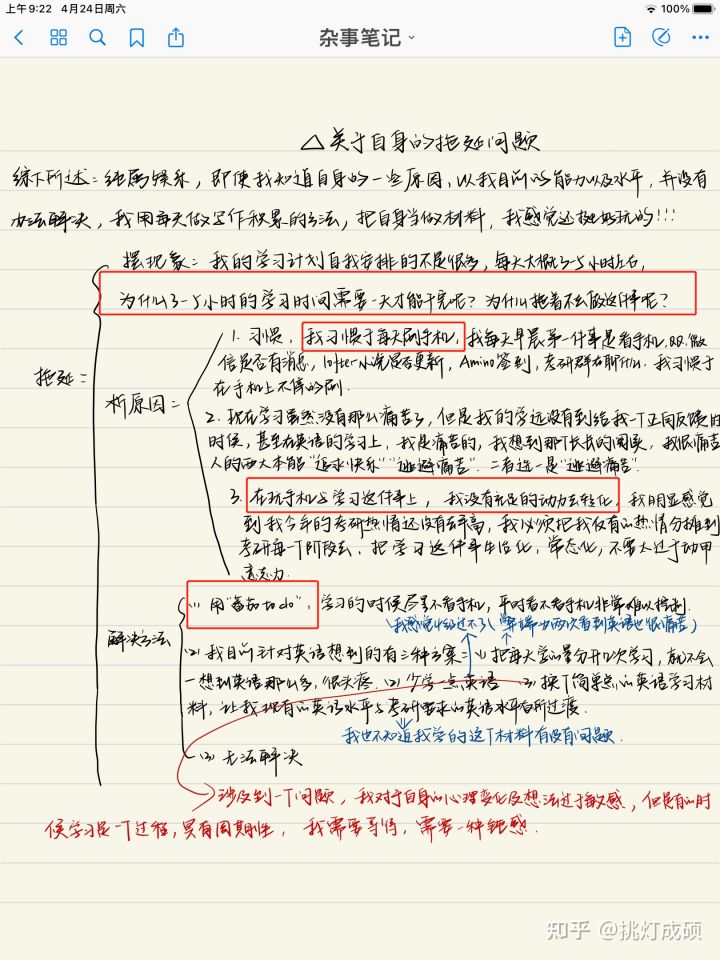 上午9:22 4月24日周六
100%
杂事笔记
△关于自身的拖延问题
综下所述：纯属娱乐，即便我知道自身的一些原因，以我目前的能力以及水平，并没有
办法解决，我用每天做写作积累的方法，把自身当做材料，我感觉还挺好玩的!!!
摆现象：我的学习计划自我安排的不是很多，每天大概3-5小时左右，
为什么3-5小时的学习时间需要一天才能干完呢？为什么拖着不去做这件事呢？
拖延：
析原因：
1. 习惯，我习惯于每天刷手机，我每天早晨第一件事是看手机QQ、微
信是否有消息，lofter小说是否更新，Amino签到，考研群在聊什么，我习惯于
在手机上不停的刷.
2. 现在学习虽然没有那么痛苦了，但是我的学远没有到给我一个正向反馈的
时候，甚至在英语的学习上，我是痛苦的，我想到那个长长的周乘，我很痛苦
人的两大本能“追求快乐”“逃避痛苦”. 二者选一是“逃避痛苦”.
3. 在玩手机与学习这件事上，我没有充足的动力去转化，我明显感觉
到我今年的考研热情还没有去年高，我必须把我仅有的热情分摊到
考研每一个阶段去，把学习这件事生活化，常态化，不需太过于动用
意志力.
解决方法
(1) 用“番茄to do”，学习的时候尽量不看手机，平时看不看手机非常难以控制.
(我感觉好像过不了(学端力两次看到英语也很痛苦)
(2) 我目前针对英语想到的有三种方案：(1) 把每天学的量分开几次学习，就不会
一想到英语那么多，很头疼. (2) 少学一点英语 (3) 换个简单点的英语学习材
料，让我现有的英语水平与考研要求的英语水平有所过渡.
我也不知道我学的这个材料有没有问题.
(3) 无法解决
涉及到一个问题，我对于自身的心理变化及想法过于敏感，但是有的时
候学习是一个过程，具有周期性，我需要等待，需要一种钝感.
知乎 @挑灯成硕